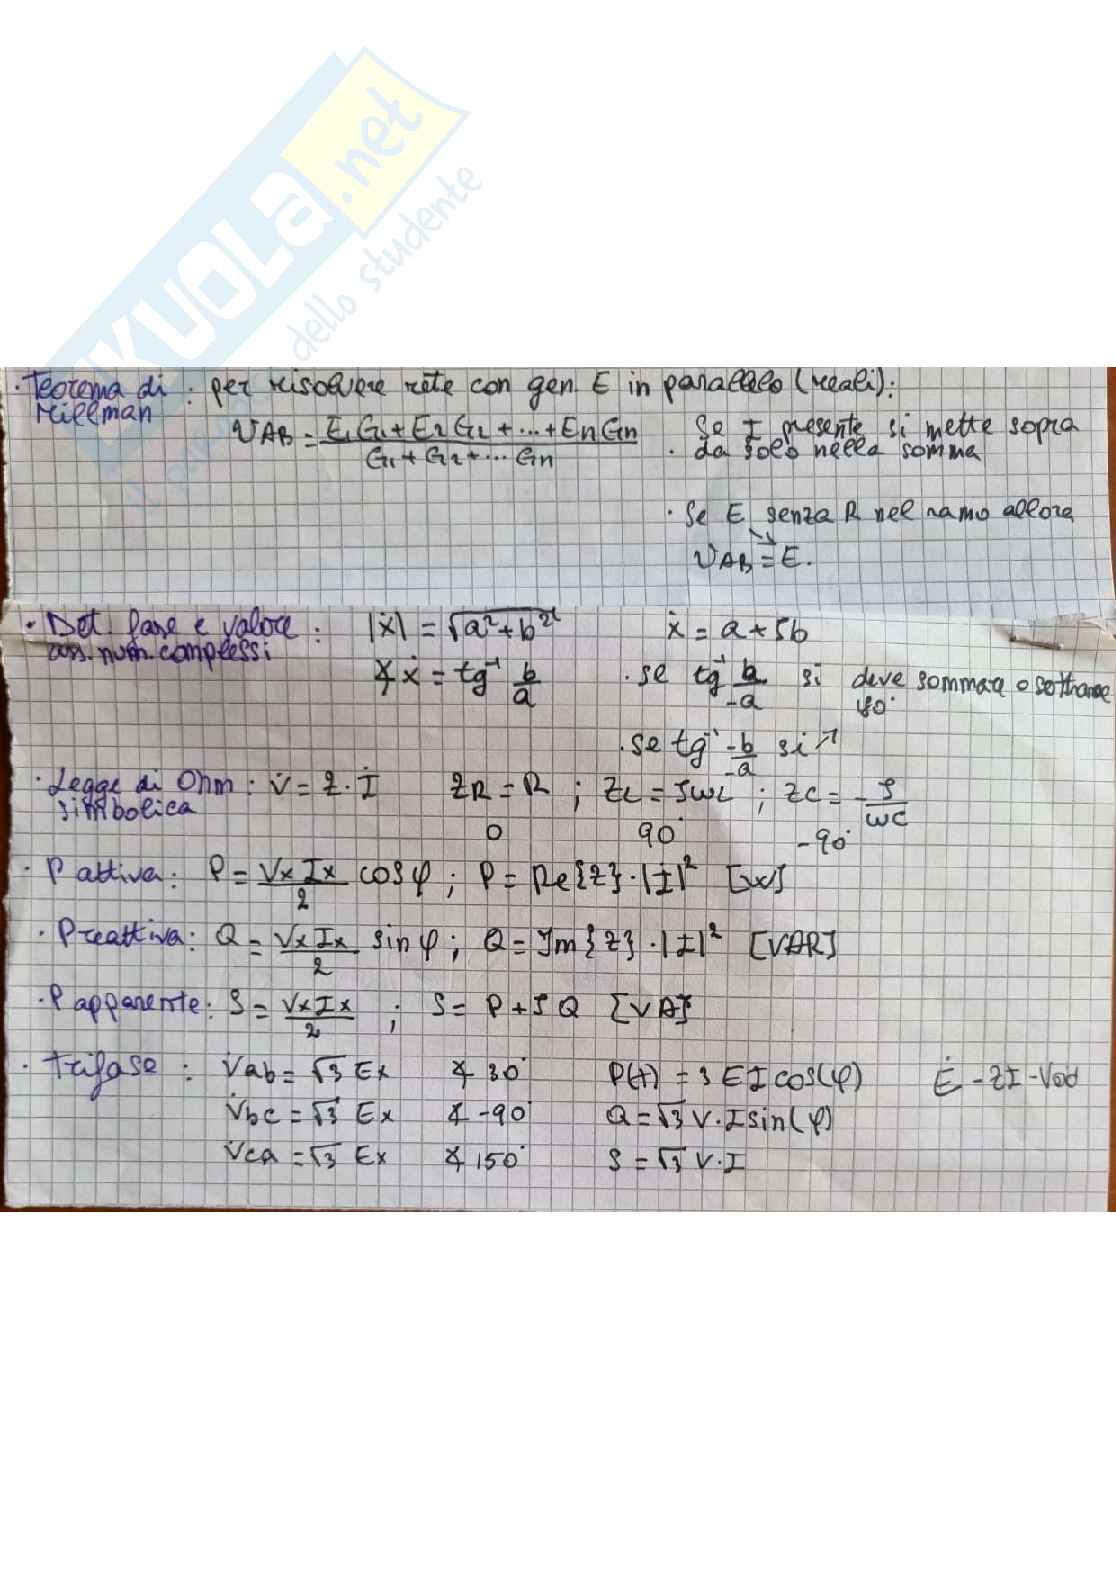 SKUOLA.net
il paradiso dello studente
· Teorema di Millman : per risolvere rete con gen. E in parallelo (reali):
VAB = E1G1 + E2G2 + ... + EnGn / G1 + G2 + ... Gn
· Se I presente si mette sopra
da solo nella somma
· Se E senza R nel ramo allora
VAB = E.
· Det. fase e valore ass. num. complessi : |ẋ| = √a² + b² ẋ = a + jb
∡ẋ = tg⁻¹ b/a · se tg⁻¹ b/-a si deve sommare o sottrarre
· se tg⁻¹ -b/-a si ↗
· Legge di Ohm simbolica : V̇ = Z · İ ZR = R ; ZL = jωL ; ZC = -j/ωC
0 90° -90°
· P attiva : P = Vx Ix / 2 cosφ ; P = Re{Z} · |İ|² [W]
· P reattiva : Q = Vx Ix / 2 sinφ ; Q = Im{Z} · |I|² [VAR]
· P apparente : S = Vx Ix / 2 ; S = P + jQ [VA]
· Trifase : V̇ab = √3 Ex ∡ 30° P(t) = 3 E I cos(φ) Ė - ZI -
V̇bc = √3 Ex ∡ -90° Q = √3 V · I sin(φ)
V̇ca = √3 Ex ∡ 150° S = √3 V · I